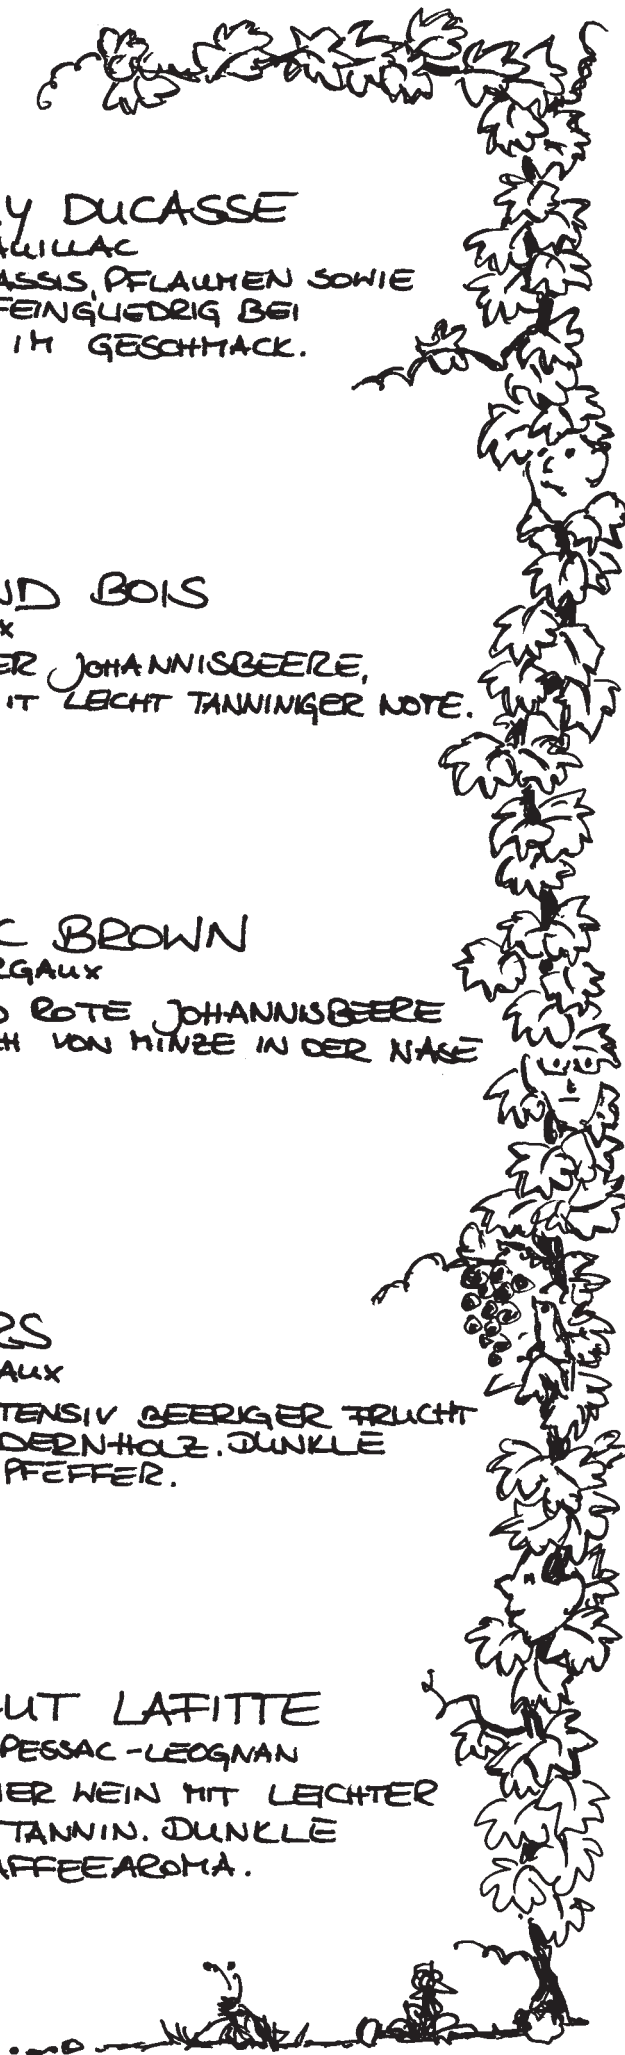 Y DUCASSE
AUILLAC
ASSIS, PFLAUMEN SOWIE
FEINGLIEDRIG BEI
IM GESCHMACK.
ND BOIS
X
ER JOHANNISBEERE,
IT LEICHT TANNINIGER NOTE.
C BROWN
RGAUX
ROTE JOHANNISBEERE
CH VON MINZE IN DER NASE
RS
AUX
TENSIV BEERIGER FRUCHT
DERNHOLZ. DUNKLE
PFEFFER.
UT LAFITTE
PESSAC-LEOGNAN
ER WEIN MIT LEICHTER
TANNIN. DUNKLE
AFFEEAROMA.